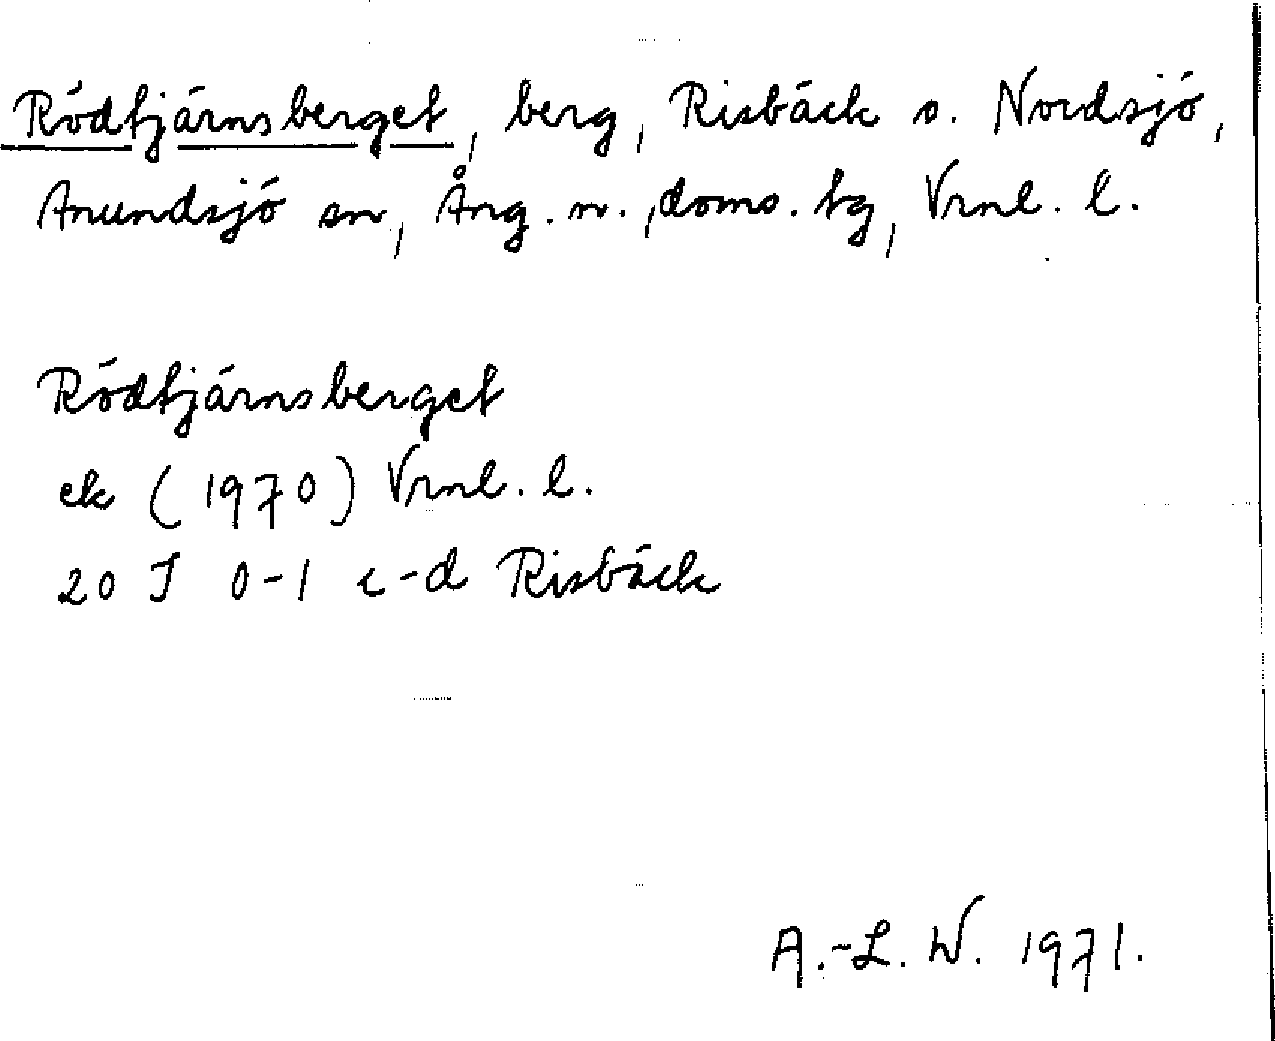 Rödtjärnsberget, berg, Risbäck s. Nordsjö,
Anundsjö sn, Ång. n., doms. tg, Vrnl. l.
Rödtjärnsberget
ek (1970) Vrnl. l.
20 J 0-1 c-d Risbäck
A.-L. W. 1971.